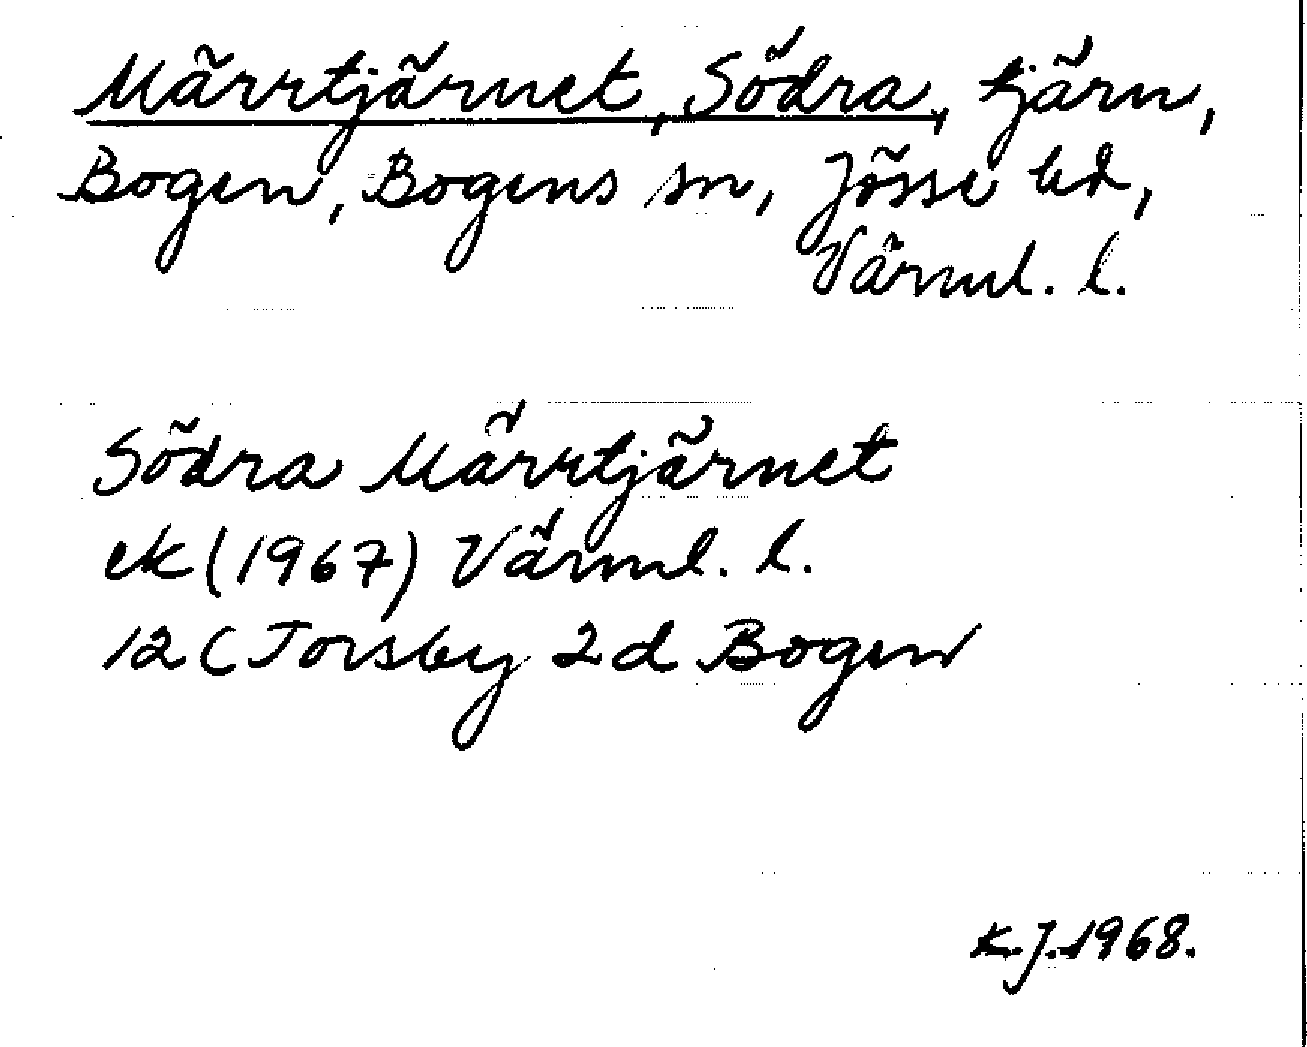 Märrtjärnet, Södra, tjärn,
Bogen, Bogens sn, Jösse hd,
Värml. l.
Södra Märrtjärnet
ek (1967) Värml. l.
12 C Torsby 2d Bogen
K.J. 1968.